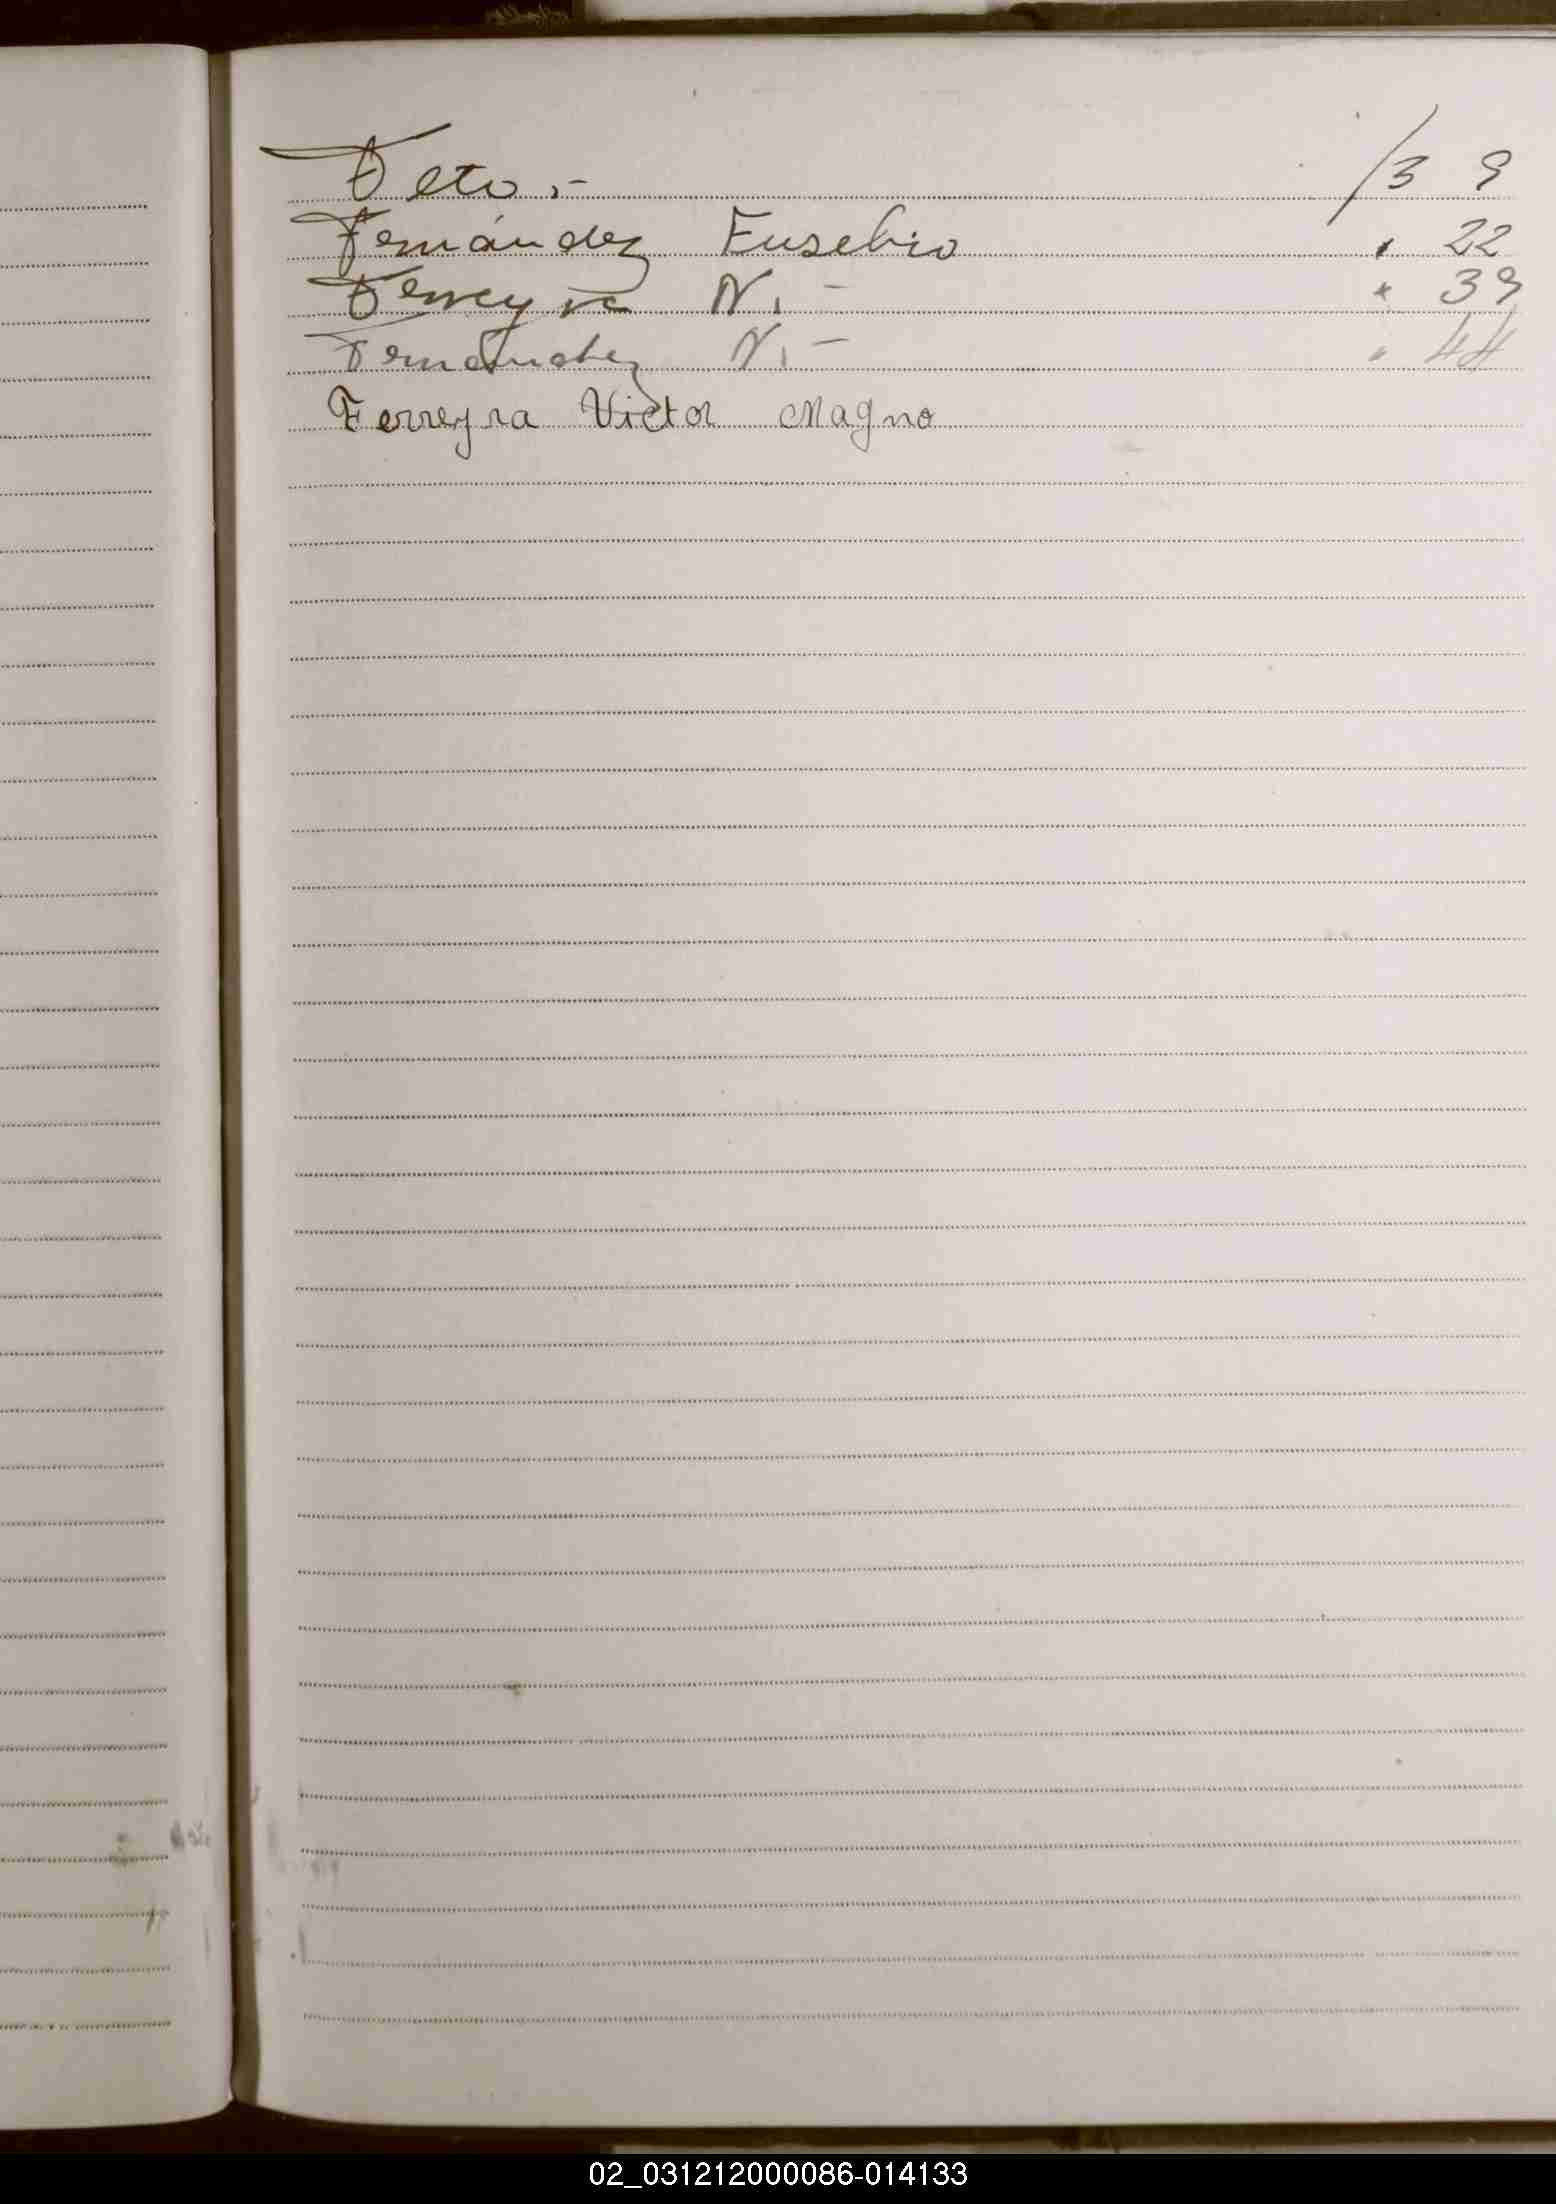 Feto.- /3 9
Fernández Eusebio " 22
Ferreyra N.- " 39
Fernández N.- " 44
Ferreyra Victor Magno
02_031212000086-014133